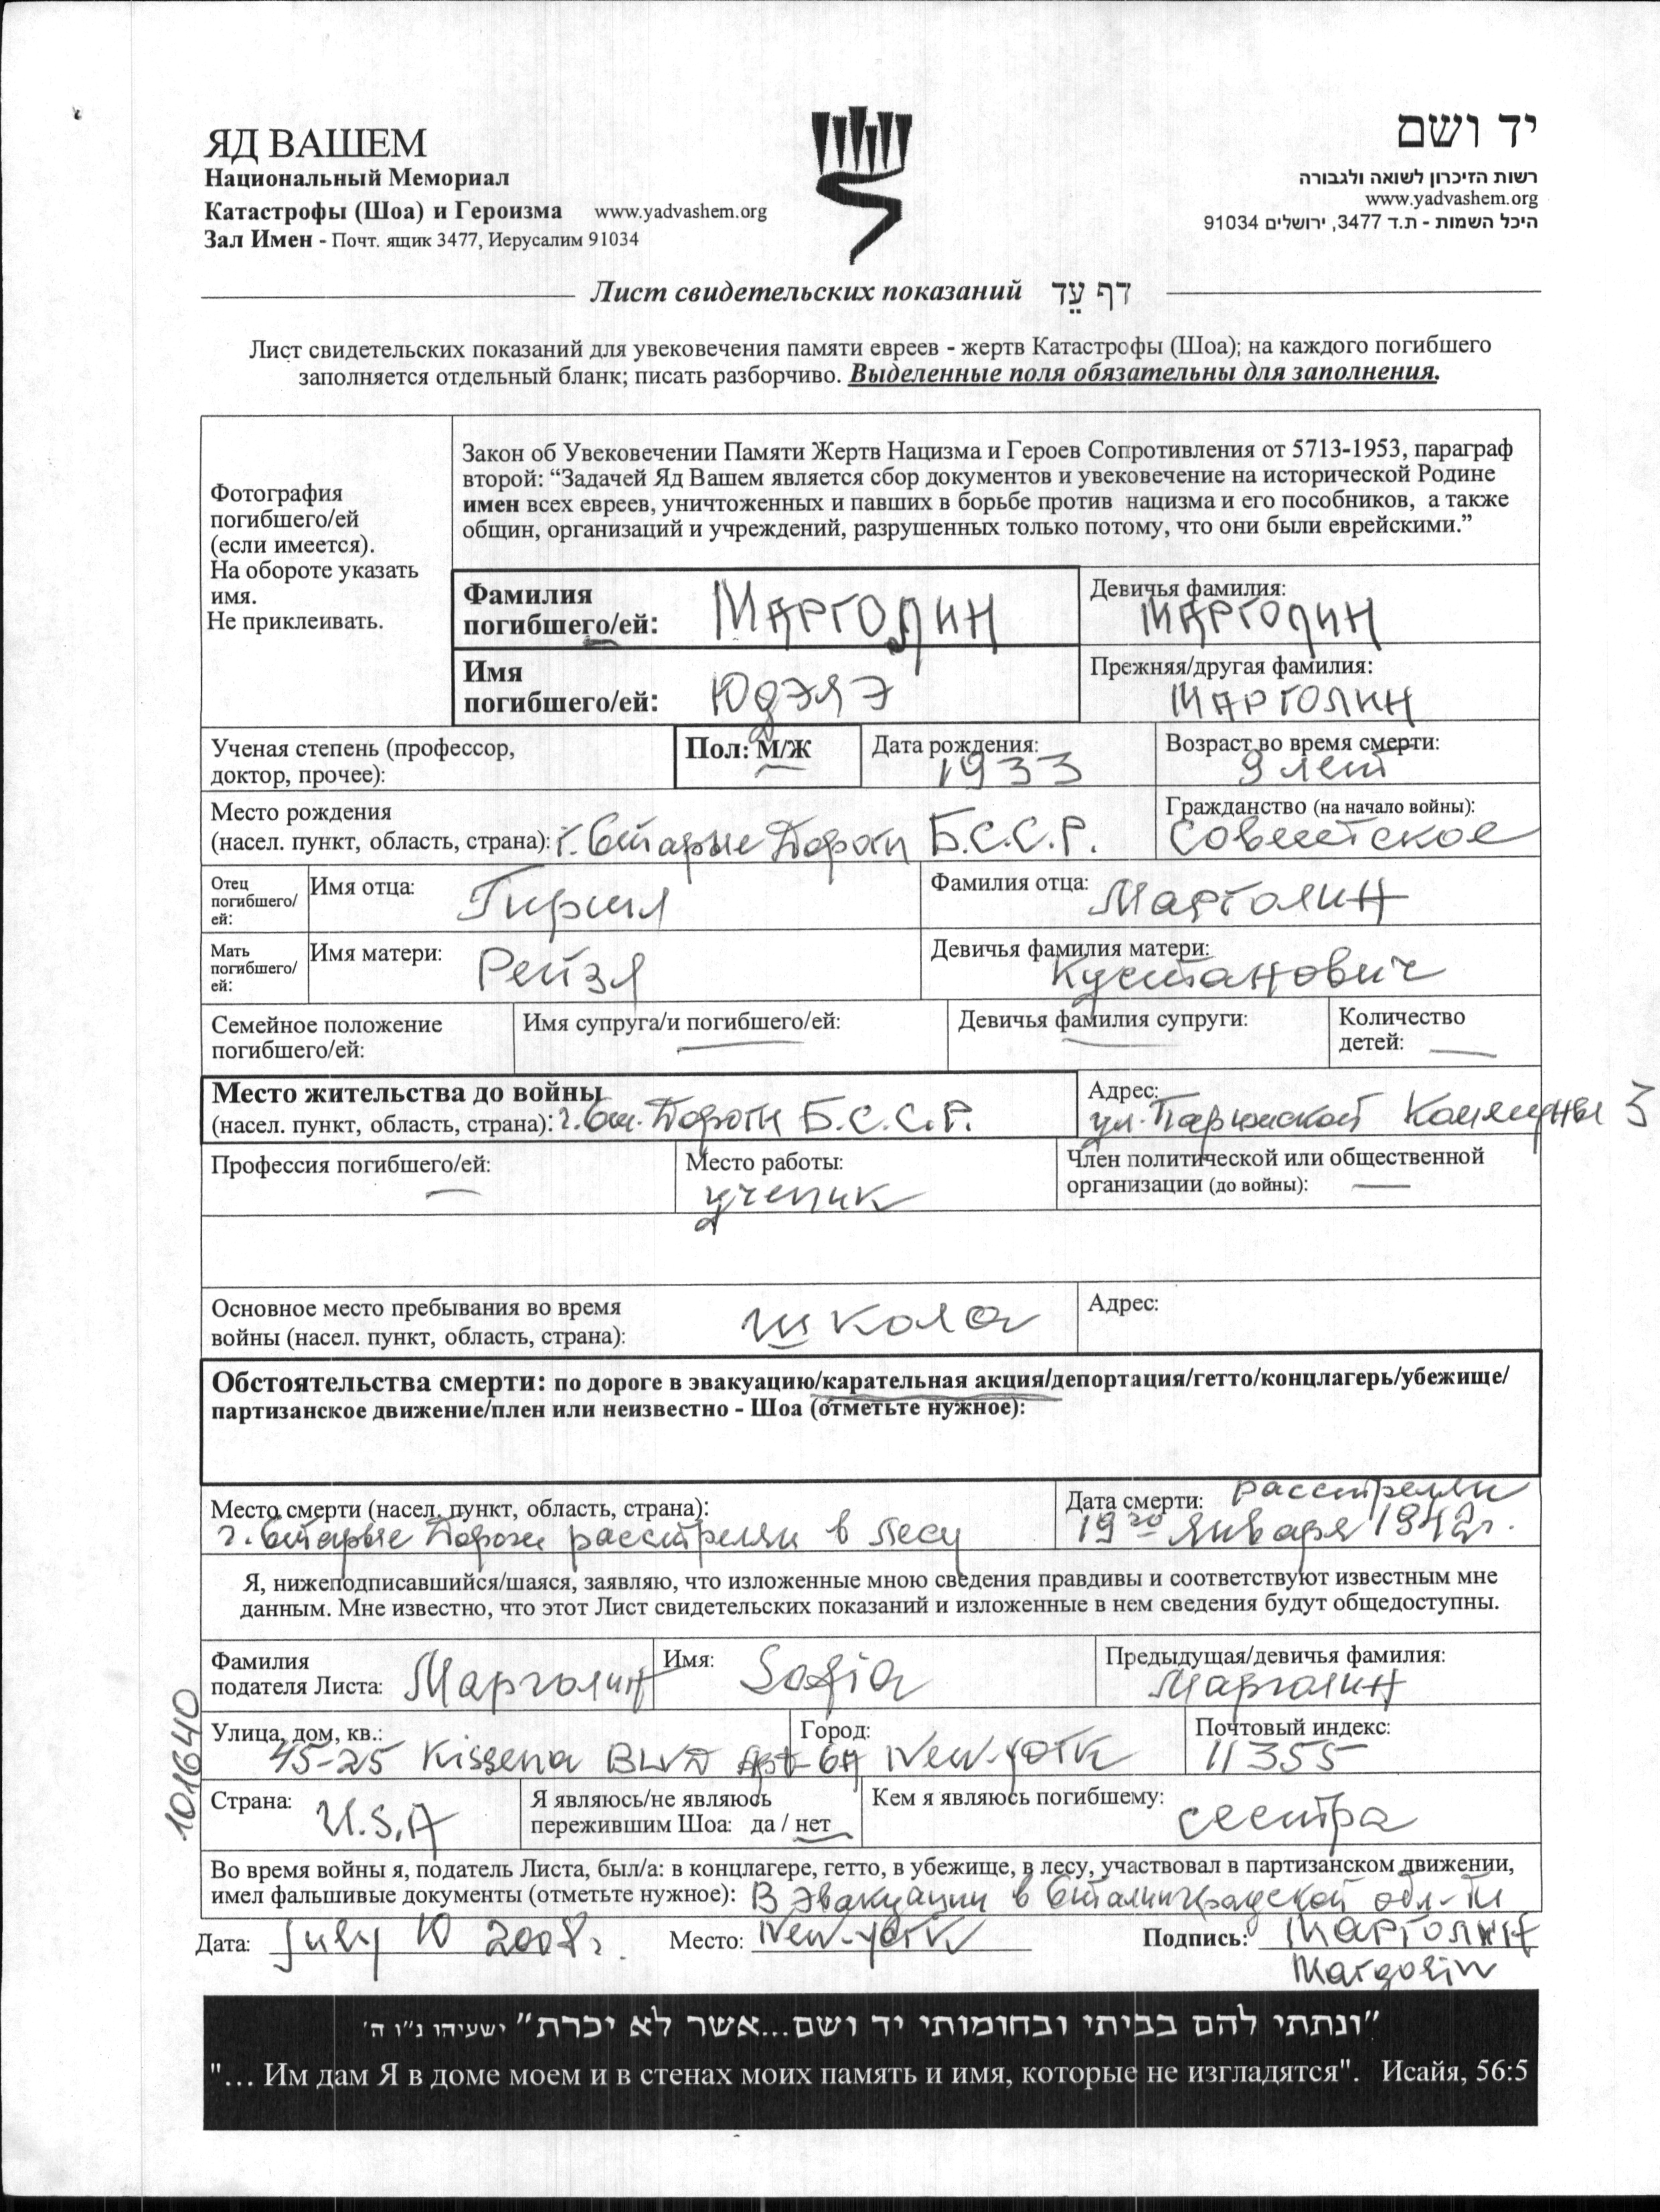 ЯД ВАШЕМ
Национальный Мемориал
Катастрофы (Шоа) и Героизма www.yadvashem.org
Зал Имен - Почт. ящик 3477, Иерусалим 91034
יד ושם
רשות הזיכרון לשואה ולגבורה
www.yadvashem.org
היכל השמות - ת.ד 3477, ירושלים 91034
Лист свидетельских показаний דף עֵד
Лист свидетельских показаний для увековечения памяти евреев - жертв Катастрофы (Шоа); на каждого погибшего
заполняется отдельный бланк; писать разборчиво. Выделенные поля обязательны для заполнения.
Фотография
погибшего/ей
(если имеется).
На обороте указать
имя.
Не приклеивать.
Закон об Увековечении Памяти Жертв Нацизма и Героев Сопротивления от 5713-1953, параграф
второй: “Задачей Яд Вашем является сбор документов и увековечение на исторической Родине
имен всех евреев, уничтоженных и павших в борьбе против нацизма и его пособников, а также
общин, организаций и учреждений, разрушенных только потому, что они были еврейскими.”
Фамилия
погибшего/ей: Марголин
Девичья фамилия:
Марголин
Имя
погибшего/ей: Юдэлэ
Прежняя/другая фамилия:
Марголин
Ученая степень (профессор,
доктор, прочее):
Пол: М/Ж
Дата рождения:
1933
Возраст во время смерти:
9 лет
Место рождения
(насел. пункт, область, страна): г. Старые Дороги Б.С.С.Р.
Гражданство (на начало войны):
Советское
Отец
погибшего/
ей:
Имя отца: Гиршл
Фамилия отца: Марголин
Мать
погибшего/
ей:
Имя матери: Рейзл
Девичья фамилия матери:
Кустанович
Семейное положение
погибшего/ей:
Имя супруга/и погибшего/ей:
Девичья фамилия супруги:
Количество
детей: —
Место жительства до войны
(насел. пункт, область, страна): г. Ст. Дороги Б.С.С.Р.
Адрес:
ул. Парижской Коммуны 3
Профессия погибшего/ей:
—
Место работы:
ученик
Член политической или общественной
организации (до войны): —
Основное место пребывания во время
войны (насел. пункт, область, страна): школа
Адрес:
Обстоятельства смерти: по дороге в эвакуацию/карательная акция/депортация/гетто/концлагерь/убежище/
партизанское движение/плен или неизвестно - Шоа (отметьте нужное):
Место смерти (насел. пункт, область, страна):
г. Старые Дороги расстреляли в лесу
Дата смерти: расстреляли
19го Января 1942г.
Я, нижеподписавшийся/шаяся, заявляю, что изложенные мною сведения правдивы и соответствуют известным мне
данным. Мне известно, что этот Лист свидетельских показаний и изложенные в нем сведения будут общедоступны.
Фамилия
подателя Листа: Марголин
Имя: Sofia
Предыдущая/девичья фамилия:
Марголин
Улица, дом, кв.:
45-25 Kissena BLVD Apt 6A
Город:
New-york
Почтовый индекс:
11355
Страна: U.S.A
Я являюсь/не являюсь
пережившим Шоа: да / нет
Кем я являюсь погибшему:
сестра
Во время войны я, податель Листа, был/а: в концлагере, гетто, в убежище, в лесу, участвовал в партизанском движении,
имел фальшивые документы (отметьте нужное): В Эвакуации в Сталинградской обл-ти
Дата: July 10 2008г. Место: New-york Подпись: Марголин
Margolin
101640
"ונתתי להם בביתי ובחומותי יד ושם...אשר לא יכרת" ישעיהו נ"ו ה'
"… Им дам Я в доме моем и в стенах моих память и имя, которые не изгладятся". Исайя, 56:5